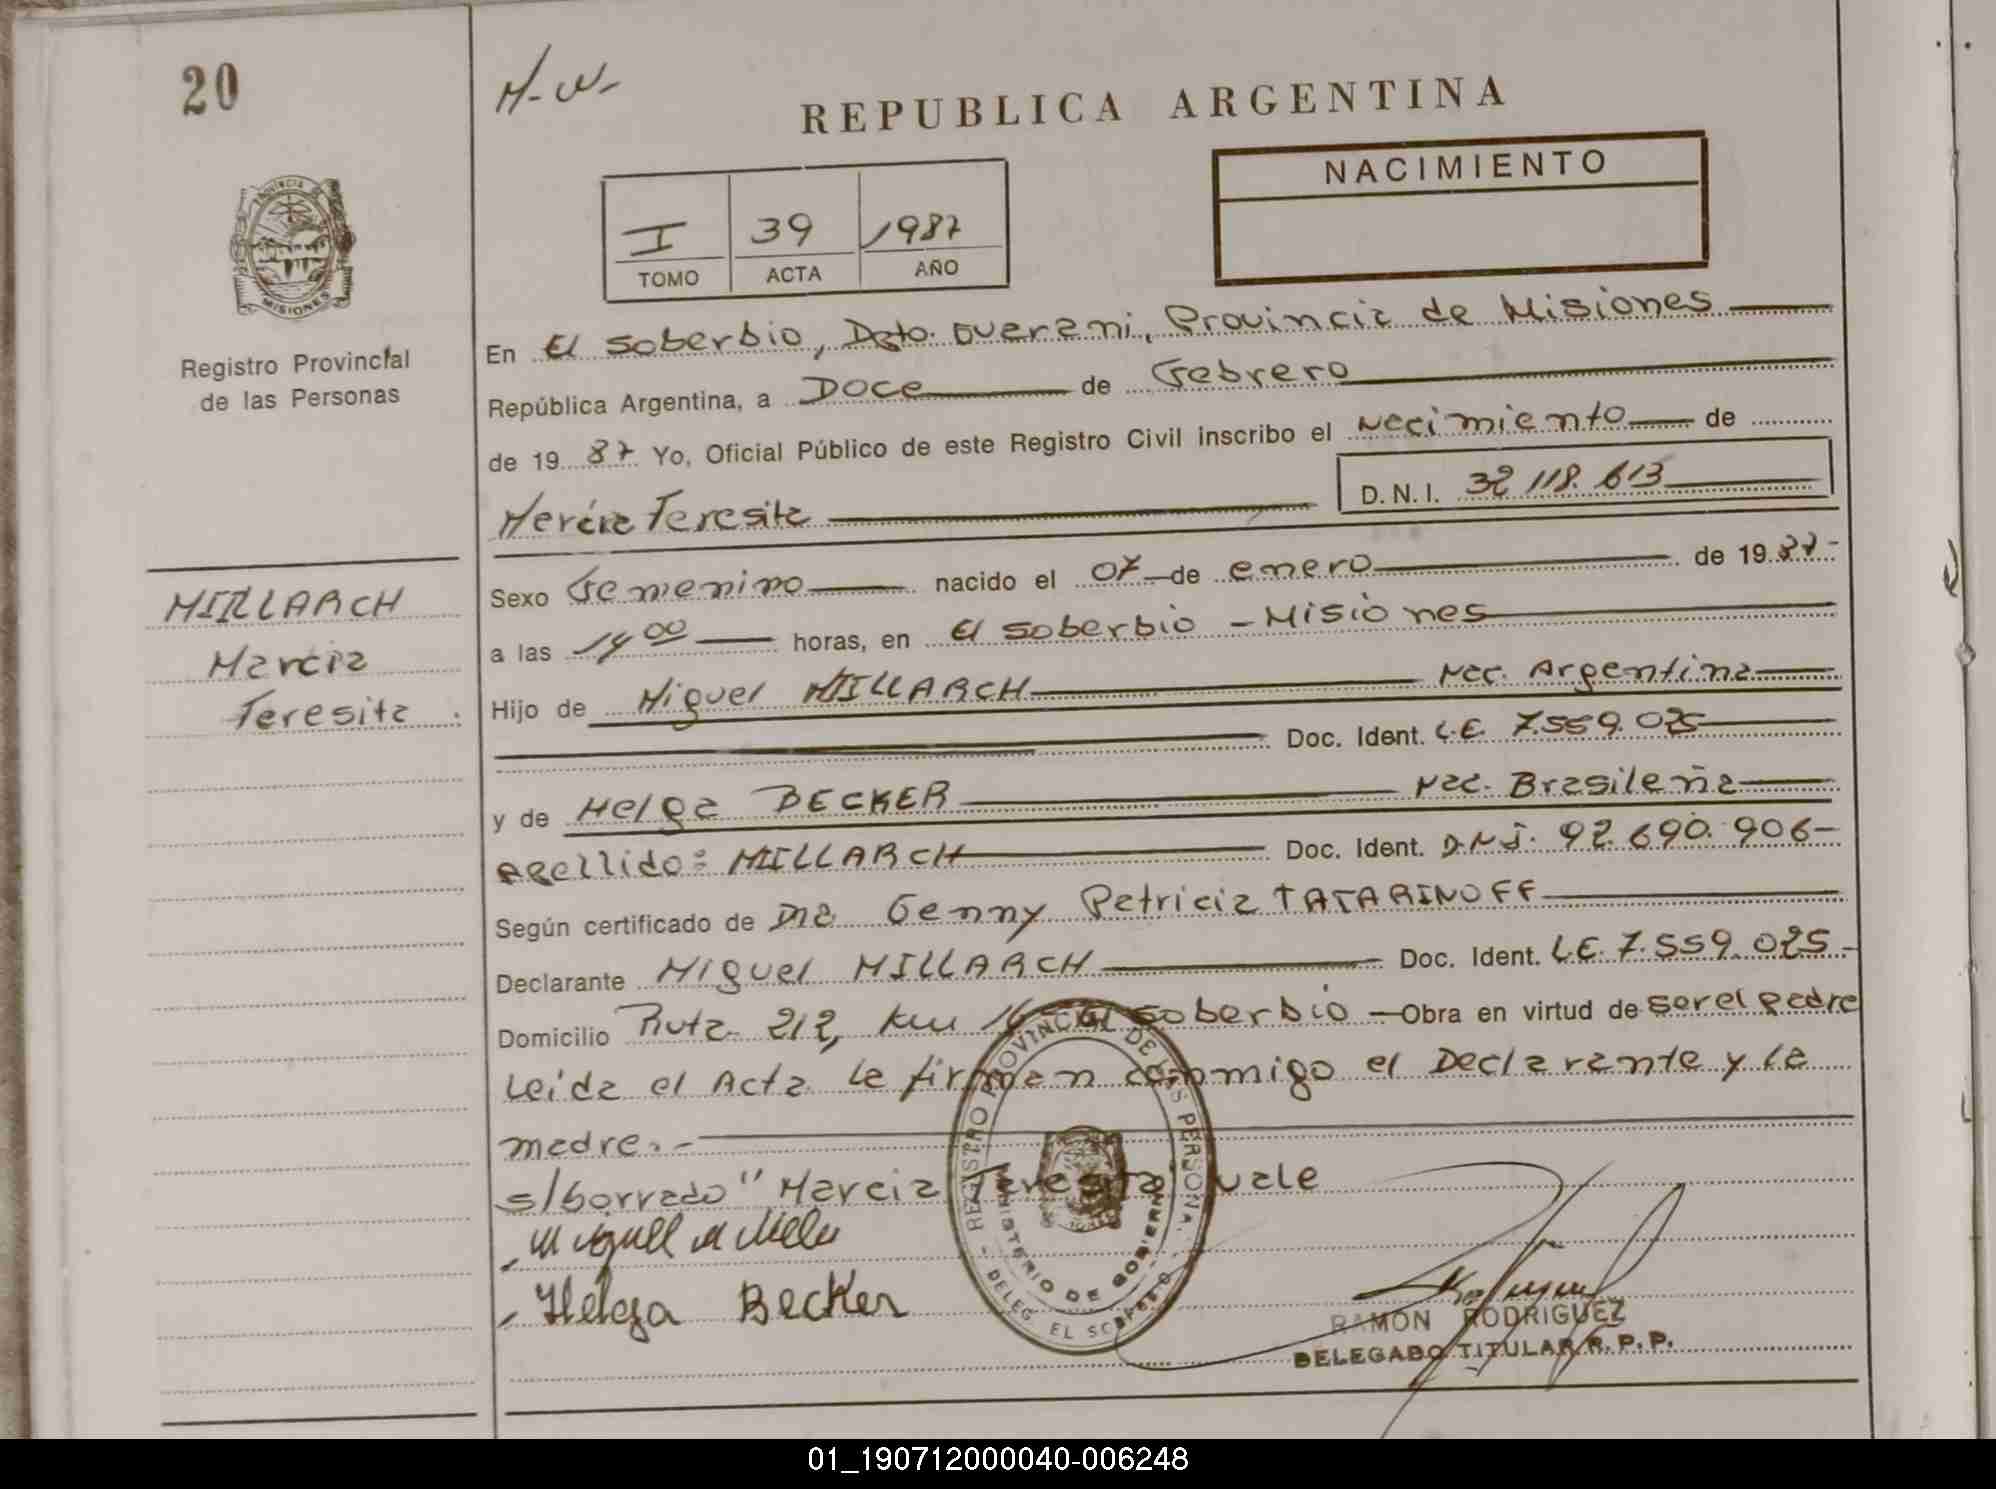 20
H-W-
REPUBLICA ARGENTINA
PROVINCIA DE
MISIONES
Registro Provincial
de las Personas
I 39 1987
TOMO ACTA AÑO
NACIMIENTO
En El Soberbio, Dpto. Guarani, Provincia de Misiones
República Argentina, a Doce de Febrero
de 19 87 Yo, Oficial Público de este Registro Civil inscribo el Nacimiento de
Marcia Teresita D.N.I. 32.118.613
MILLARCH
Marcia
Teresita
Sexo Femenino nacido el 07 de enero de 19 87-
a las 14 00 horas, en El Soberbio - Misiones
Hijo de Miguel MILLARCH Nac. Argentina
Doc. Ident. L.E. 7.559.025
y de Helga BECKER Nac. Brasileña
Apellido: MILLARCH Doc. Ident. D.N.I. 92.690.906-
Según certificado de Dra. Genny Patricia TATARINOFF
Declarante Miguel MILLARCH Doc. Ident. L.E. 7.559.025.-
Domicilio Ruta 212, Km 16 El Soberbio - Obra en virtud de ser el padre
Leida el Acta la firman conmigo el Declarante y la
madre.-
s/borrado "Marcia Teresita" vale
Helega Becker
REGISTRO PROVINCIAL DE LAS PERSONAS
MINISTERIO DE GOBIERNO
- DELEG. EL SOBERBIO -
RAMON RODRIGUEZ
DELEGADO TITULAR R.P.P.
01_190712000040-006248